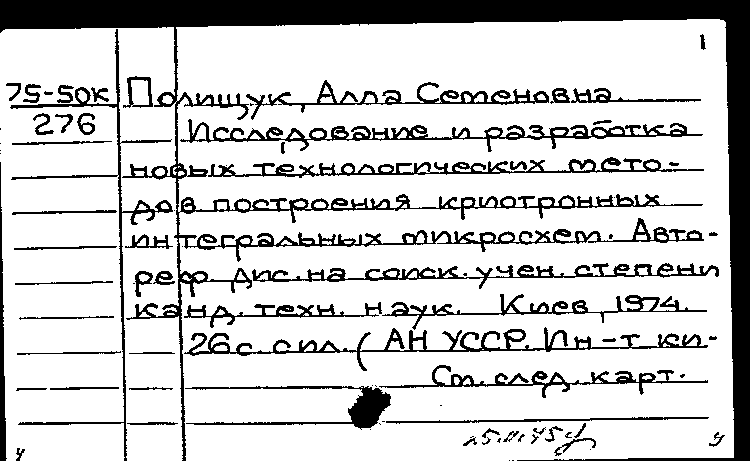 1
75-50К Полищук, Алла Семеновна.
276 Исследование и разработка
новых технологических мето-
дов построения криотронных
интегральных микросхем. Авто-
реф. дис. на соиск. учен. степени
канд. техн. наук. Киев, 1974.
26 с. с ил. (АН УССР. Ин-т ки-
См. след. карт.